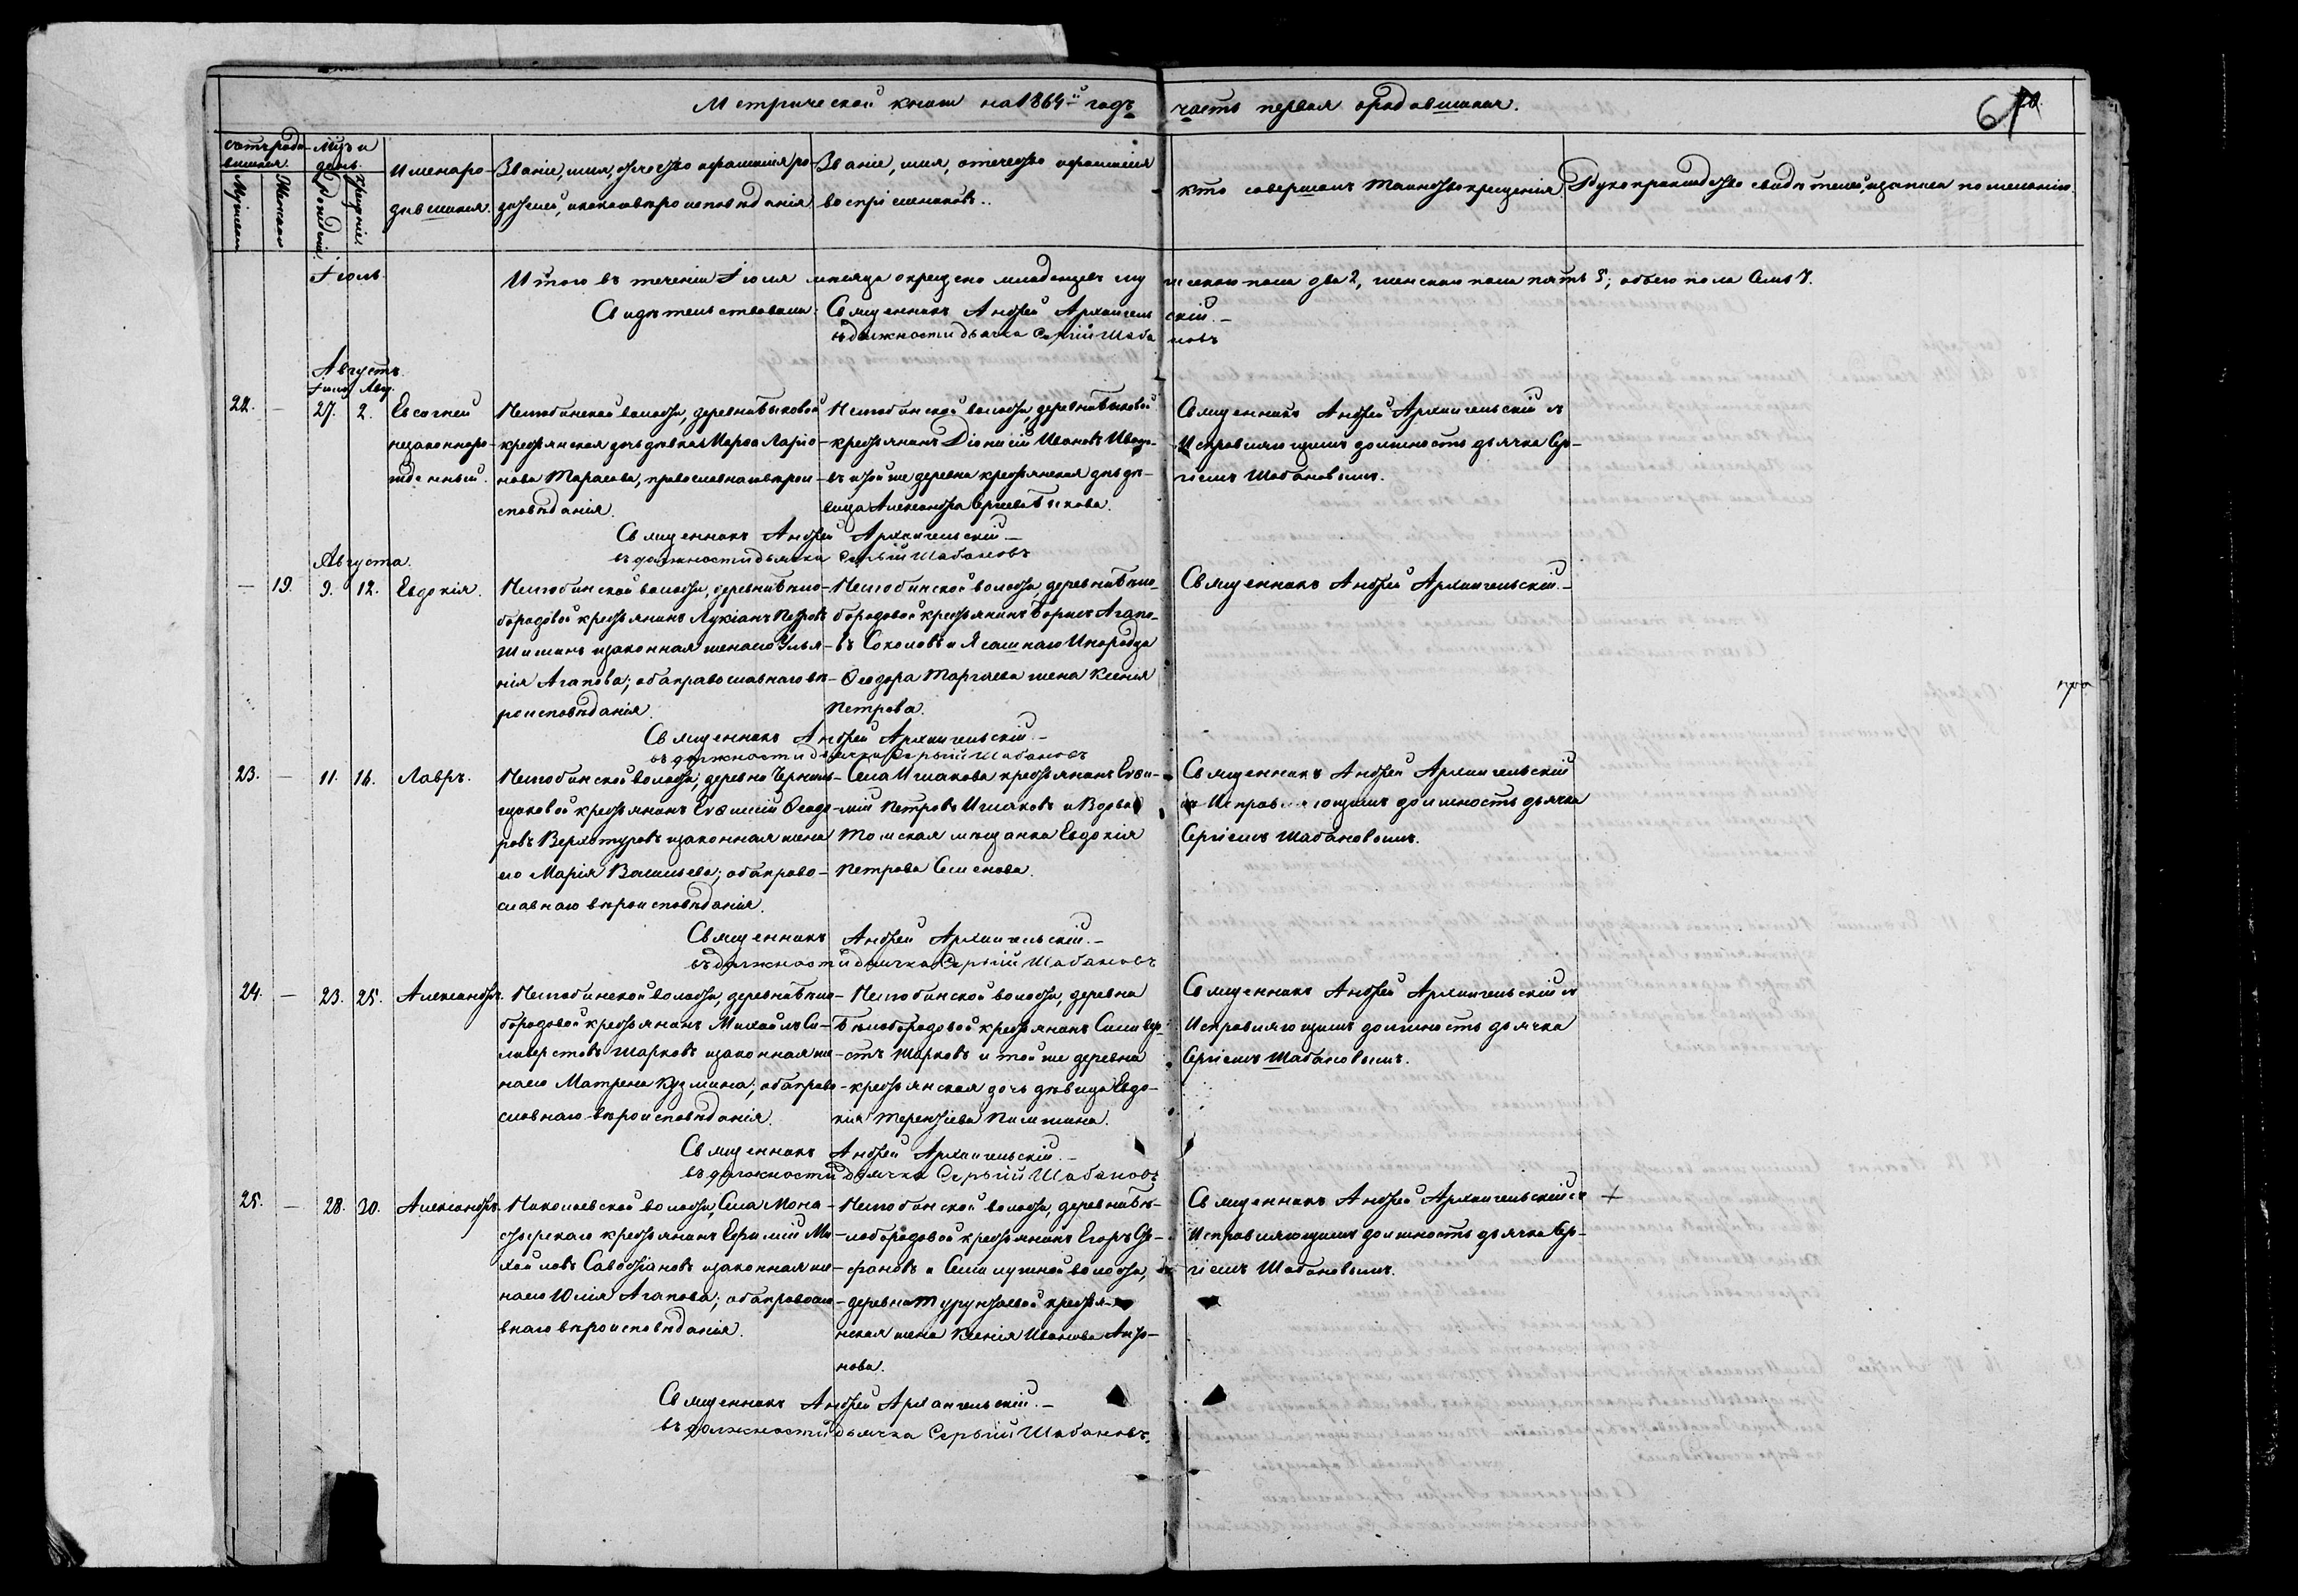 Метрической книги на 1864-й годъ часть первая о родившихся.
67
счетъ роди-
вшихся.
Мужеска
Женска
Мѣсяцъ и
день.
рожденія
крещенія.
Имена ро-
дившихся.
Званіе, имя, отчество и фамилія ро-
дителей, и какого вѣроисповѣданія
Званіе, имя, отечество и фамилія
воспріемниковъ.
Кто совершалъ Таинство крещенія
Рукоприкладство свидѣтелей, записи по желанію.
Іюль.
Итого въ теченіи Іюля мѣсяца окрещено младенцевъ му жескаго пола два 2, женскаго пола пять 5; обоего пола Семь 7.
Свидѣтельствовали: Священникъ Андрей Архангель скій.-
въ должности дьячка Сергій Шаба новъ
Августъ.
Іюля Авг.
22. — 27. 2. Евсигней
незаконноро-
жденный.
Нелюбинской волости, деревни Быковой
крестьянская дочь дѣвка Марѳа Ларіо-
нова Тарасова, православнаго вѣрои-
сповѣданія.
Нелюбинской волости, деревни Быковой
крестьянинъ Діонисій Ивановъ
въ и той же деревни крестьянская дочь дѣ-
вица Александра Сергеева Быкова.
Священникъ Андрей Архангельскій и
Исправляющимъ должность дьячка Сер-
гіемъ Шабановымъ.
Священникъ Андрей Архангельскій.-
въ должности дьячка Сергій Шабановъ
Августа.
— 19. 9. 12. Евдокія.
Нелюбинской волости, деревни Бѣло-
бородовой крестьянинъ Лукіанъ Петровъ
Шишинъ и законная жена его Улья-
нія Агапова; оба православнаго вѣ-
роисповѣданія.
Нелюбинской волости, деревни Бѣло-
бородовой крестьянинъ Борисъ Агапо-
въ Соколовъ и Ясашнаго Инородца
Ѳеодора Таргаева жена Ксенія
Петрова.
Священникъ Андрей Архангельскій.-
Священникъ Андрей Архангельскій.-
въ должности дьячка Сергій Шабановъ
23. — 11. 16. Лавръ.
Нелюбинской волости, деревни Черниль-
щиковой крестьянинъ Евѳимій Ѳеодо-
ровъ Верхотуровъ и законная жена
его Марія Васильева; оба право-
славнаго вѣроисповѣданія.
Села Иглакова крестьянинъ Евѳи-
мій Петровъ Иглаковъ и Вдова
Томская мѣщанка Евдокія
Петрова Семенова.
Священникъ Андрей Архангельскій
Исправляющимъ должность дьячка
Сергіемъ Шабановымъ.
Священникъ Андрей Архангельскій.-
въ должности дьячка Сергій Шабановъ
24. — 23. 25. Александръ.
Нелюбинской волости, деревни Бѣло-
бородовой крестьянинъ Михаилъ Си-
ливерстовъ Шарковъ и законная же-
на его Матрена Кузмина; оба право-
славнаго вѣроисповѣданія.
Нелюбинской волости, деревни
Бѣлобородовой крестьянинъ Силивер-
стъ Шарковъ и той же деревни
крестьянская дочь дѣвица Евдо-
кія Терентіева
Священникъ Андрей Архангельскій и
Исправляющимъ должность дьячка
Сергіемъ Шабановымъ.
Священникъ Андрей Архангельскій.-
въ должности дьячка Сергій Шабановъ
25. — 28. 30. Александръ.
Николаевской волости, Села Мона-
стырскаго крестьянинъ Ми-
хайловъ и законная же-
на его Юлія Агапова; оба правосла-
внаго вѣроисповѣданія.
Нелюбинской волости, деревни Бѣ-
лобородовой крестьянинъ Егоръ Сте-
фановъ и Семилужной волости,
деревни Турунтаевой крестья-
нская жена Ксенія Иванова Анто-
нова.
Священникъ Андрей Архангельскій съ +
Исправляющимъ должность дьячка Сер-
гіемъ Шабановымъ.
Священникъ Андрей Архангельскій.-
въ должности дьячка Сергій Шабановъ.